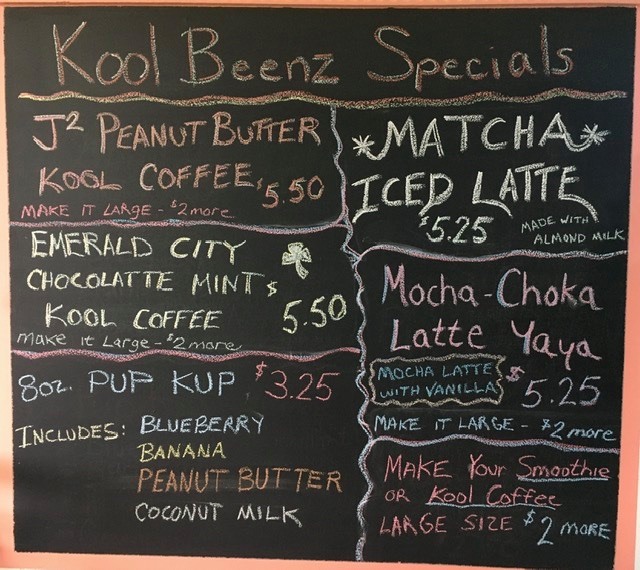 Kool Beenz Specials
J² PEANUT BUTTER
KOOL COFFEE $5.50
MAKE IT LARGE - $2 more
EMERALD CITY
CHOCOLATTE MINT
KOOL COFFEE $5.50
Make it Large - $2 more
8oz. PUP KUP $3.25
INCLUDES: BLUEBERRY
BANANA
PEANUT BUTTER
COCONUT MILK
*MATCHA*
ICED LATTE
$5.25 MADE WITH
ALMOND MILK
Mocha-Choka
Latte Yaya
MOCHA LATTE
WITH VANILLA $5.25
MAKE IT LARGE - $2 more
MAKE Your Smoothie
OR Kool Coffee
LARGE SIZE $2 MORE